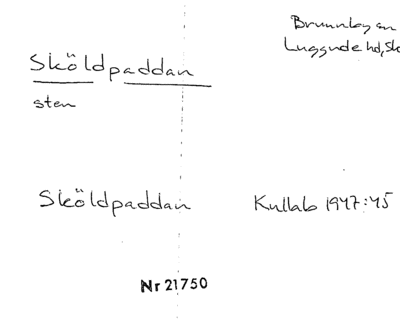 Brunnby sn
Luggude hd, Sk
Sköldpaddan
sten
Sköldpaddan
Kullab 1947:45
Nr 21750